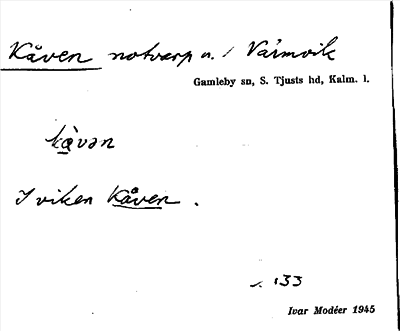 Kåven notvarp n. / Värmvik
Gamleby sn, S. Tjusts hd, Kalm. l.
kå̀vən
I viken Kåven .
s. 133
Ivar Modéer 1945